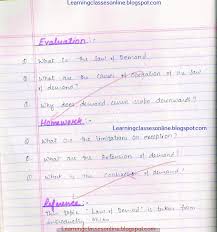 Learningclassesonline.blogspot.com
Evaluation :-
Q What is the law of Demand.
Q What are the causes of operation of the law
of demand?
Q Why does demand curve slope downwards?
Learningclassesonline.blogspot.com
Homework :-
Q What are the limitations or exception?
Q What are the Extension of demand?
Q What is the Contraction of demand?
Reference :-
The topic "Law of Demand" is taken from
Learningclassesonline.blogspot.com